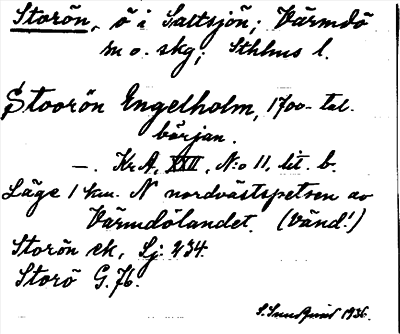 Storön, ö i Saltsjön; Värmdö
m o. skg; Sthlms l.
Stoorön Engelholm, 1700-tal.
början.
—. Kr A, XXII, N:o 11, lit. b.
Läge 1 km. N nordvästspetsen av
Värmdölandet. (Vänd!)
Storön ek, Sj. 234.
Storö G. 76.
S. Sundqvist 1936.